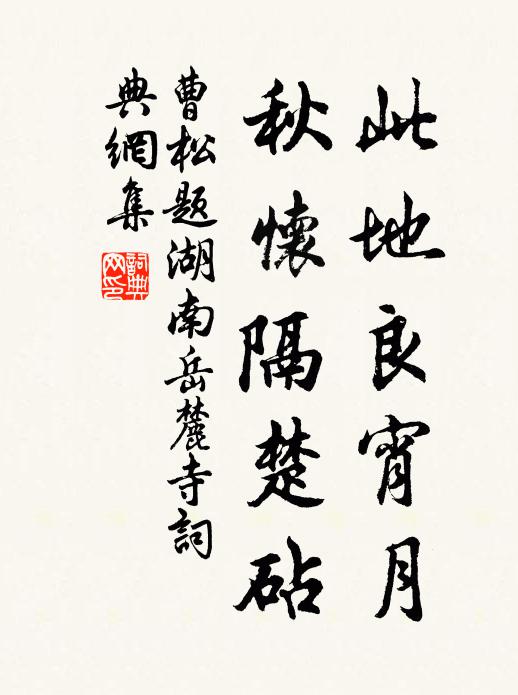 此地良宵月
秋懷隔楚砧
曹松題湖南岳麓寺詞
典網集
詞典
网印